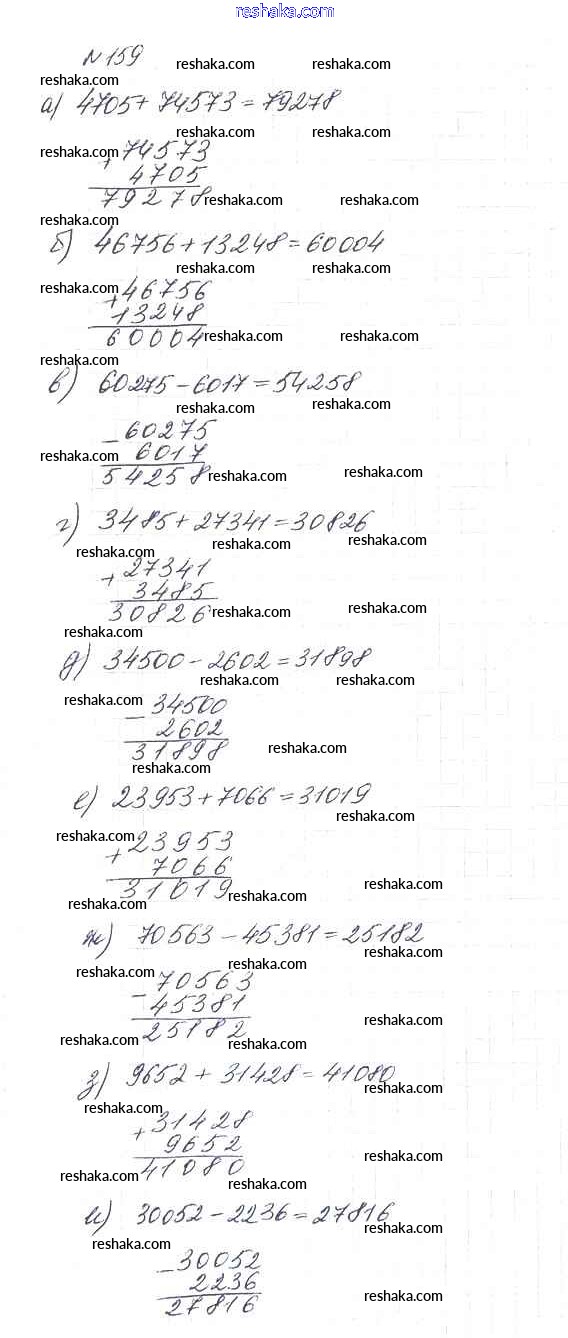 reshaka.com
№159
reshaka.com reshaka.com
reshaka.com
а) 4705 + 74573 = 79278
reshaka.com reshaka.com
reshaka.com
+ 74573
4705
79278
reshaka.com reshaka.com
reshaka.com
б) 46756 + 13248 = 60004
reshaka.com reshaka.com
reshaka.com
+ 46756
13248
60004
reshaka.com reshaka.com
reshaka.com
в) 60275 - 6017 = 54258
reshaka.com reshaka.com
- 60275
reshaka.com 6017
54258
reshaka.com reshaka.com
г) 3485 + 27341 = 30826
reshaka.com reshaka.com reshaka.com
+ 27341
3485
30826
reshaka.com reshaka.com
reshaka.com
д) 34500 - 2602 = 31898
reshaka.com reshaka.com
reshaka.com
- 34500
2602
31898
reshaka.com
reshaka.com
е) 23953 + 7066 = 31019
reshaka.com
reshaka.com
+ 23953
7066
31019
reshaka.com reshaka.com
reshaka.com
ж) 70563 - 45381 = 25182
reshaka.com
reshaka.com reshaka.com
- 70563
45381
25182
reshaka.com
reshaka.com reshaka.com
з) 9652 + 31428 = 41080
reshaka.com
reshaka.com
+ 31428
9652
41080
reshaka.com
reshaka.com reshaka.com
и) 30052 - 2236 = 27816
reshaka.com
reshaka.com
- 30052
2236
27816
reshaka.com